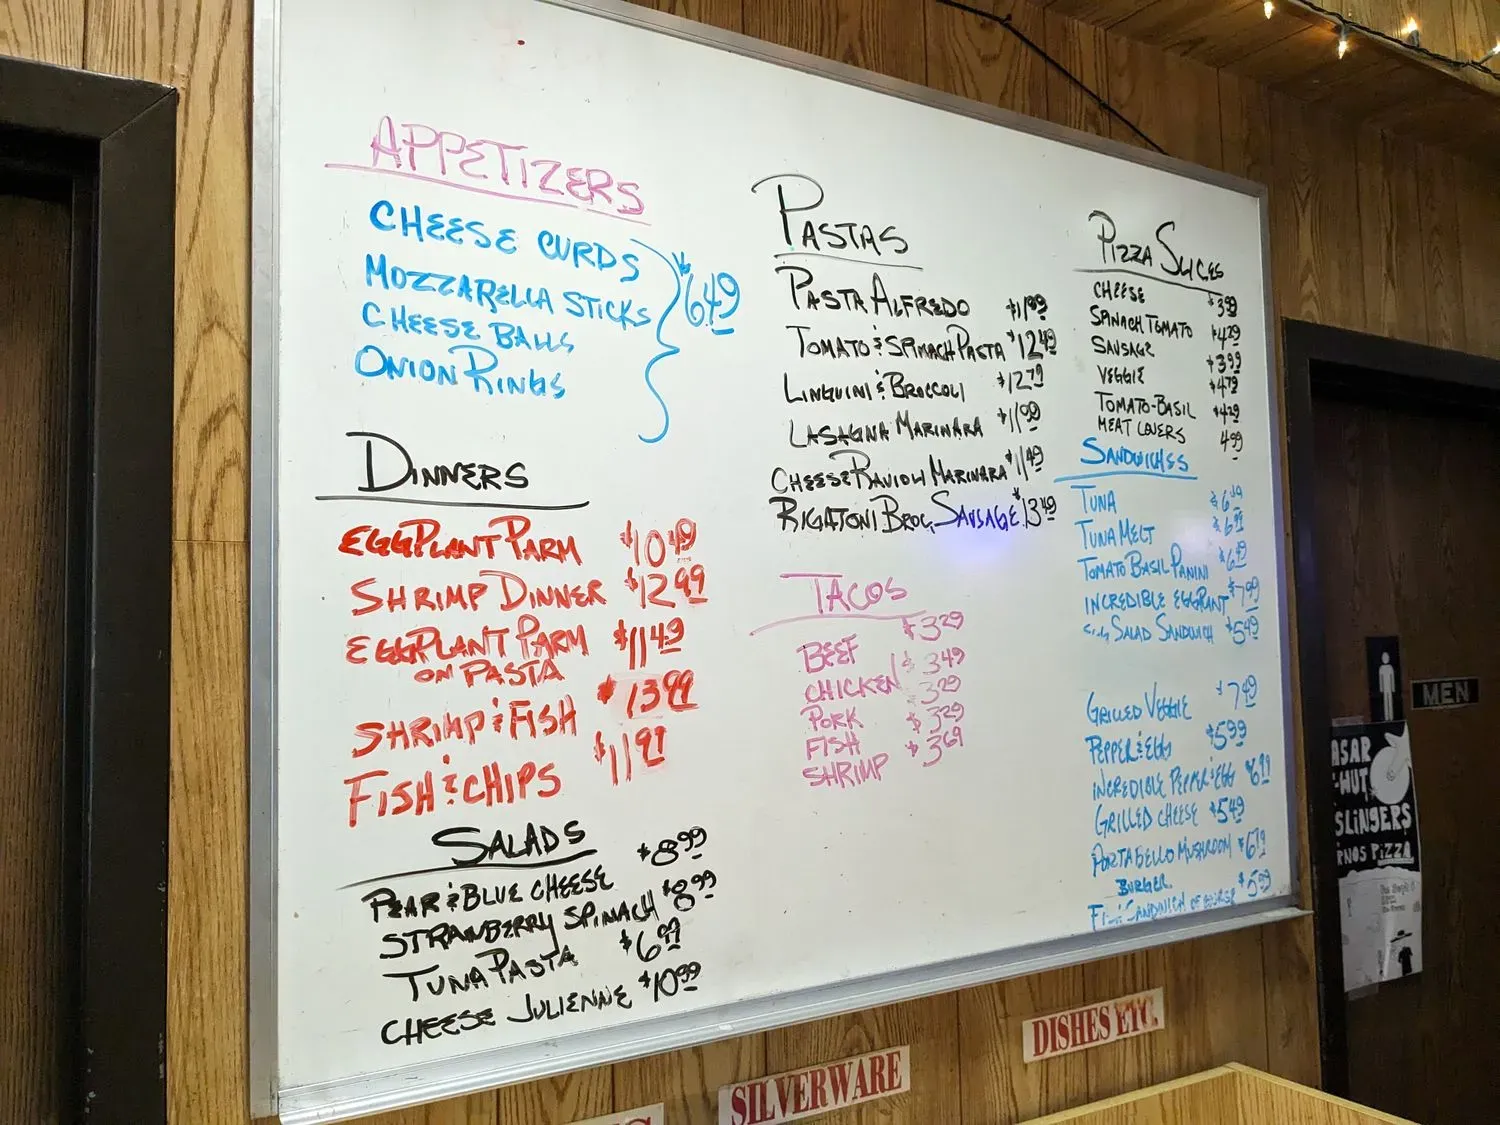 APPETIZERS
CHEESE CURDS
MOZZARELLA STICKS
CHEESE BALLS
ONION RINGS
$6.49
DINNERS
EGGPLANT PARM $10.49
SHRIMP DINNER $12.99
EGGPLANT PARM $11.49
ON PASTA
SHRIMP & FISH $13.99
FISH & CHIPS $11.99
SALADS
PEAR & BLUE CHEESE $8.99
STRAWBERRY SPINACH $8.99
TUNA PASTA $6.99
CHEESE JULIENNE $10.99
PASTAS
PASTA ALFREDO $11.99
TOMATO & SPINACH PASTA $12.49
LINGUINI & BROCCOLI $12.79
LASAGNA MARINARA $11.99
CHEESE RAVIOLI MARINARA $11.49
RIGATONI BROC. SAUSAGE $13.49
TACOS
BEEF $3.29
CHICKEN $3.49
PORK 3.29
FISH $3.29
SHRIMP $3.69
PIZZA SLICES
CHEESE $3.99
SPINACH TOMATO $4.29
SAUSAGE $3.99
VEGGIE $4.79
TOMATO-BASIL $4.29
MEAT LOVERS 4.99
SANDWICHES
TUNA
TUNA MELT $6.99
TOMATO BASIL PANINI $6.49
INCREDIBLE EGGPLANT $7.99
SALAD SANDWICH $5.49
GRILLED VEGGIE $7.49
PEPPER & EGG $5.99
INCREDIBLE PEPPER & EGG $6.99
GRILLED CHEESE $5.49
PORTABELLO MUSHROOM $6.79
BURGER
SANDWICH $5.99
MEN
SLINGERS
PIZZA
SILVERWARE
DISHES ETC.